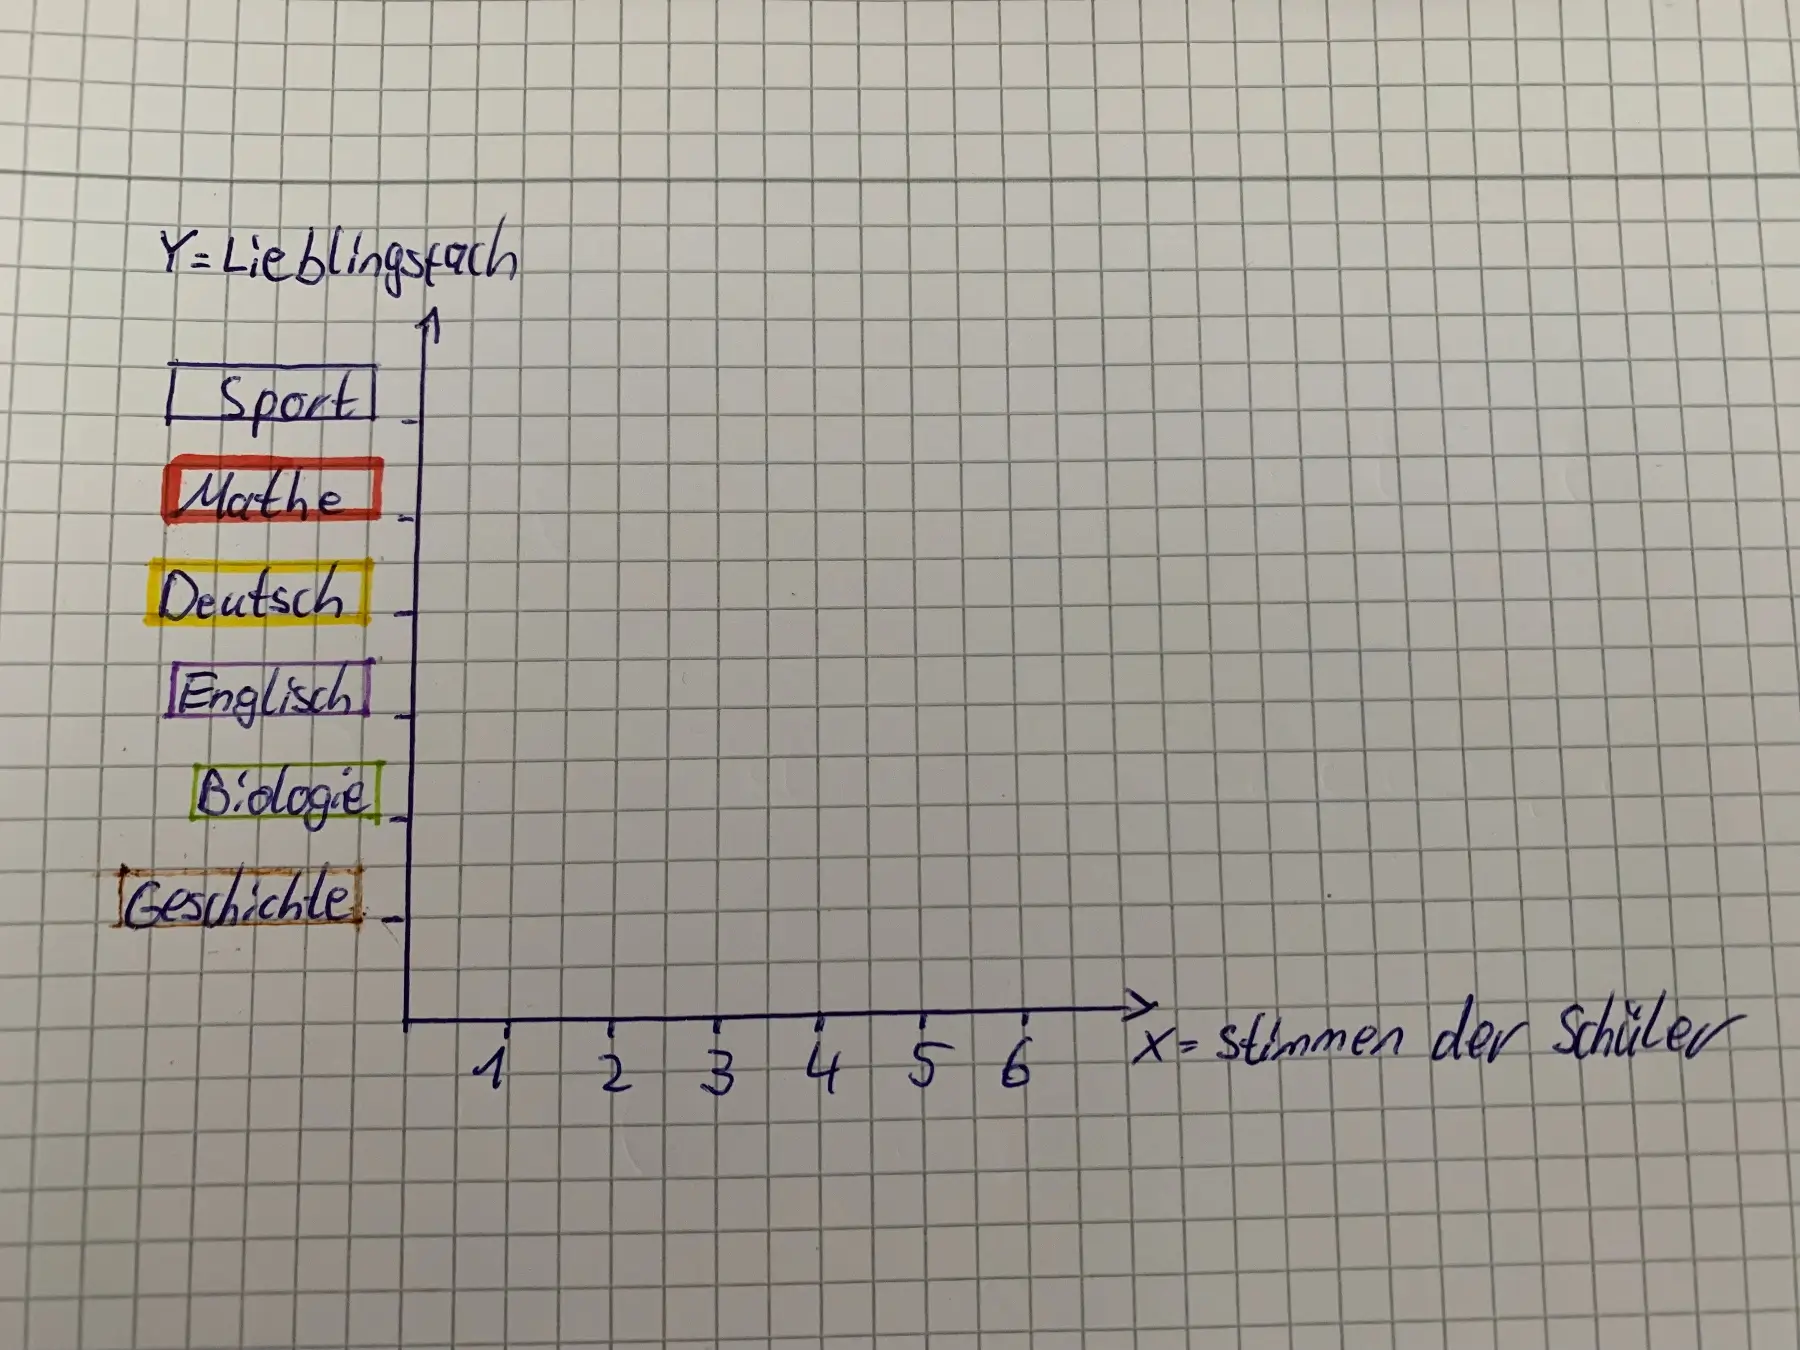 Y=Lieblingsfach
Sport
Mathe
Deutsch
Englisch
Biologie
Geschichte
1 2 3 4 5 6
X= Stimmen der Schüler